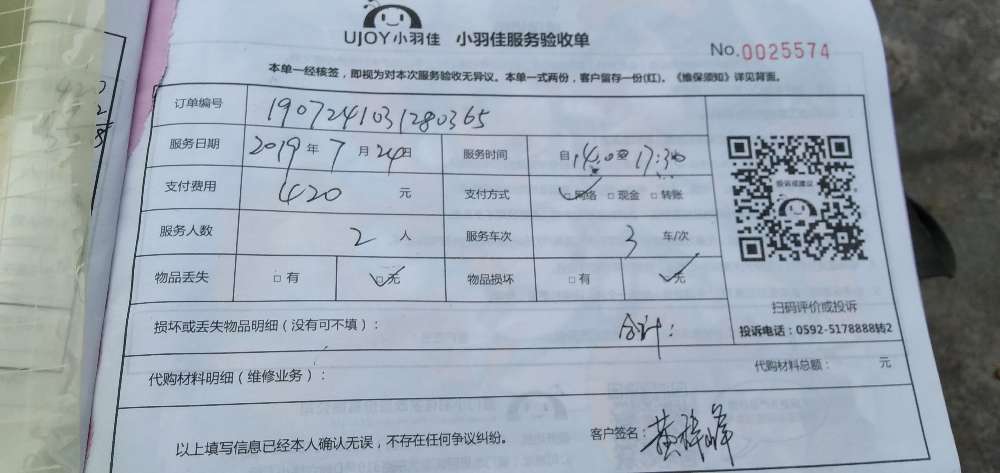 UJOY小羽佳 小羽佳服务验收单
No.0025574
本单一经核签，即视为对本次服务验收无异议。本单一式两份，客户留存一份(红)。《维保须知》详见背面。
订单编号 1907241031280365
服务日期 2019年7月24日 服务时间 自14:0至17:30
支付费用 420 元 支付方式 ☑网络 □现金 □转账
服务人数 2人 服务车次 3 车/次
投诉或建议
物品丢失 □有 ☑无 物品损坏 □有 ☑无
扫码评价或投诉
投诉电话：0592-5178888转2
损坏或丢失物品明细（没有可不填）： 合计：
代购材料明细（维修业务）： 代购材料总额： 元
以上填写信息已经本人确认无误，不存在任何争议纠纷。 客户签名：